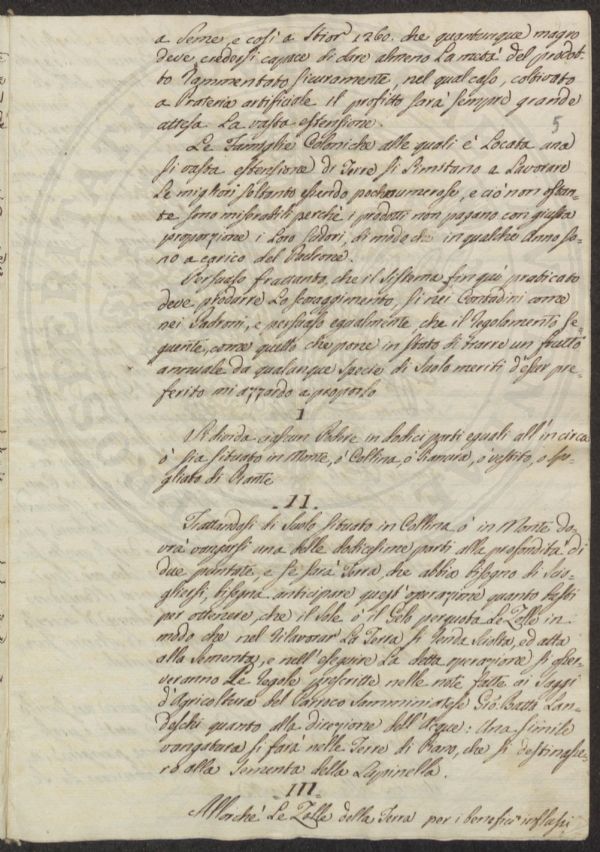 a Seme, e così a Stior.ª 1260. che quantunque magro
deve credersi capace di dare almeno La metà del prodot-
to rammentato sicuramente, nel qual caso, coltivato
a Prateria artificiale il profitto sarà sempre grande
attesa La vasta estensione.
5
Le Famiglie Coloniche alle quali è Locata una
sì vasta estensione di Terre si Limitano a Lavorare
Le migliori soltanto essendo poco numerose, e ciò non ostan-
te sono miserabili perchè i prodotti non pagano con giusta
proporzione i Loro sudori, di modo che in qualche Anno so-
no a carico del Padrone.
Persuaso frattanto, che il Sistema fin quì praticato
deve produrre Lo scoraggimento, sì nei Contadini come
nei Padroni, e persuaso egualmente, che il Regolamento se-
guente, come quello che pone in stato di trarre un frutto
annuale da qualunque specie di Suolo meriti d'esser pre-
ferito mi azzardo a proporlo
I
Si divida ciascun Podere in dodici parti eguali all'incirca
ò sia situato in Monte, ò Collina, ò Pianura, ò vestito, o spo-
gliato di Piante
II.
Trattandosi di Suolo situato in Collina ò in Monte do-
vrà vangarsi una delle dodicesime parti alla profondità di
due puntate, e se sarà Terra, che abbia bisogno di scio-
gliersi, bisogna anticipare quest'operazione quanto basti
per ottenere, che il Sole ò il Gelo percuota Le Zolle in
modo che nel rilavorar La Terra si renda sciolta, ed atta
alla Sementa, e nell'eseguire La detta operazione si osser-
veranno Le Regole prescritte nelle note fatte ai Saggi
d'Agricoltura del Parroco Samminiatese Gio: Batta Lan-
deschi quanto alla direzione dell'Acque: Una simile
vangatura si farà nelle Terre di Piano, che si destinasse-
ro alla Sementa della Lupinella.
III.
Allorchè Le Zolle della Terra per i benefici influssi